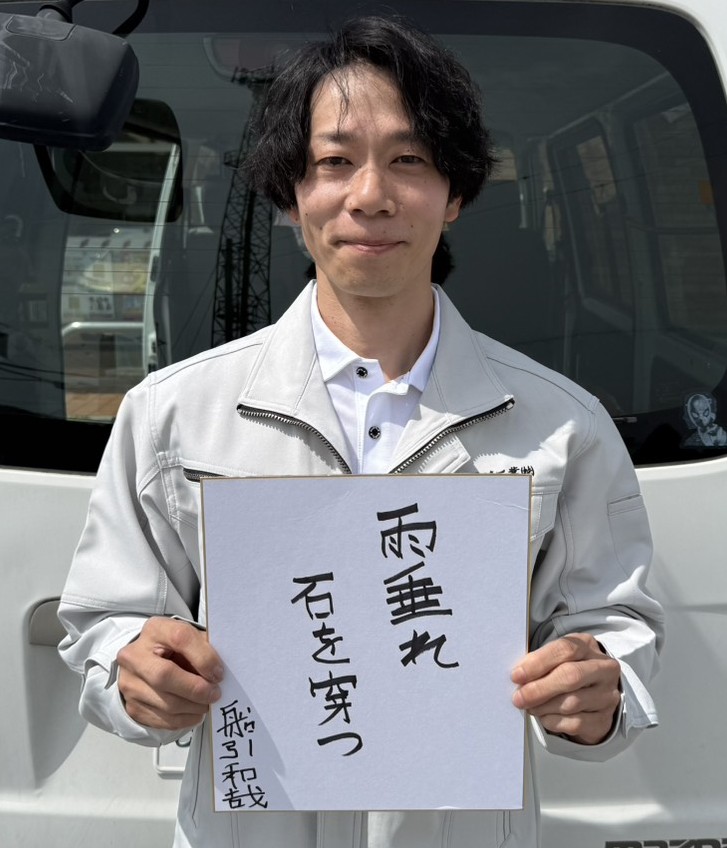 雨垂れ
石を穿つ
船引和哉